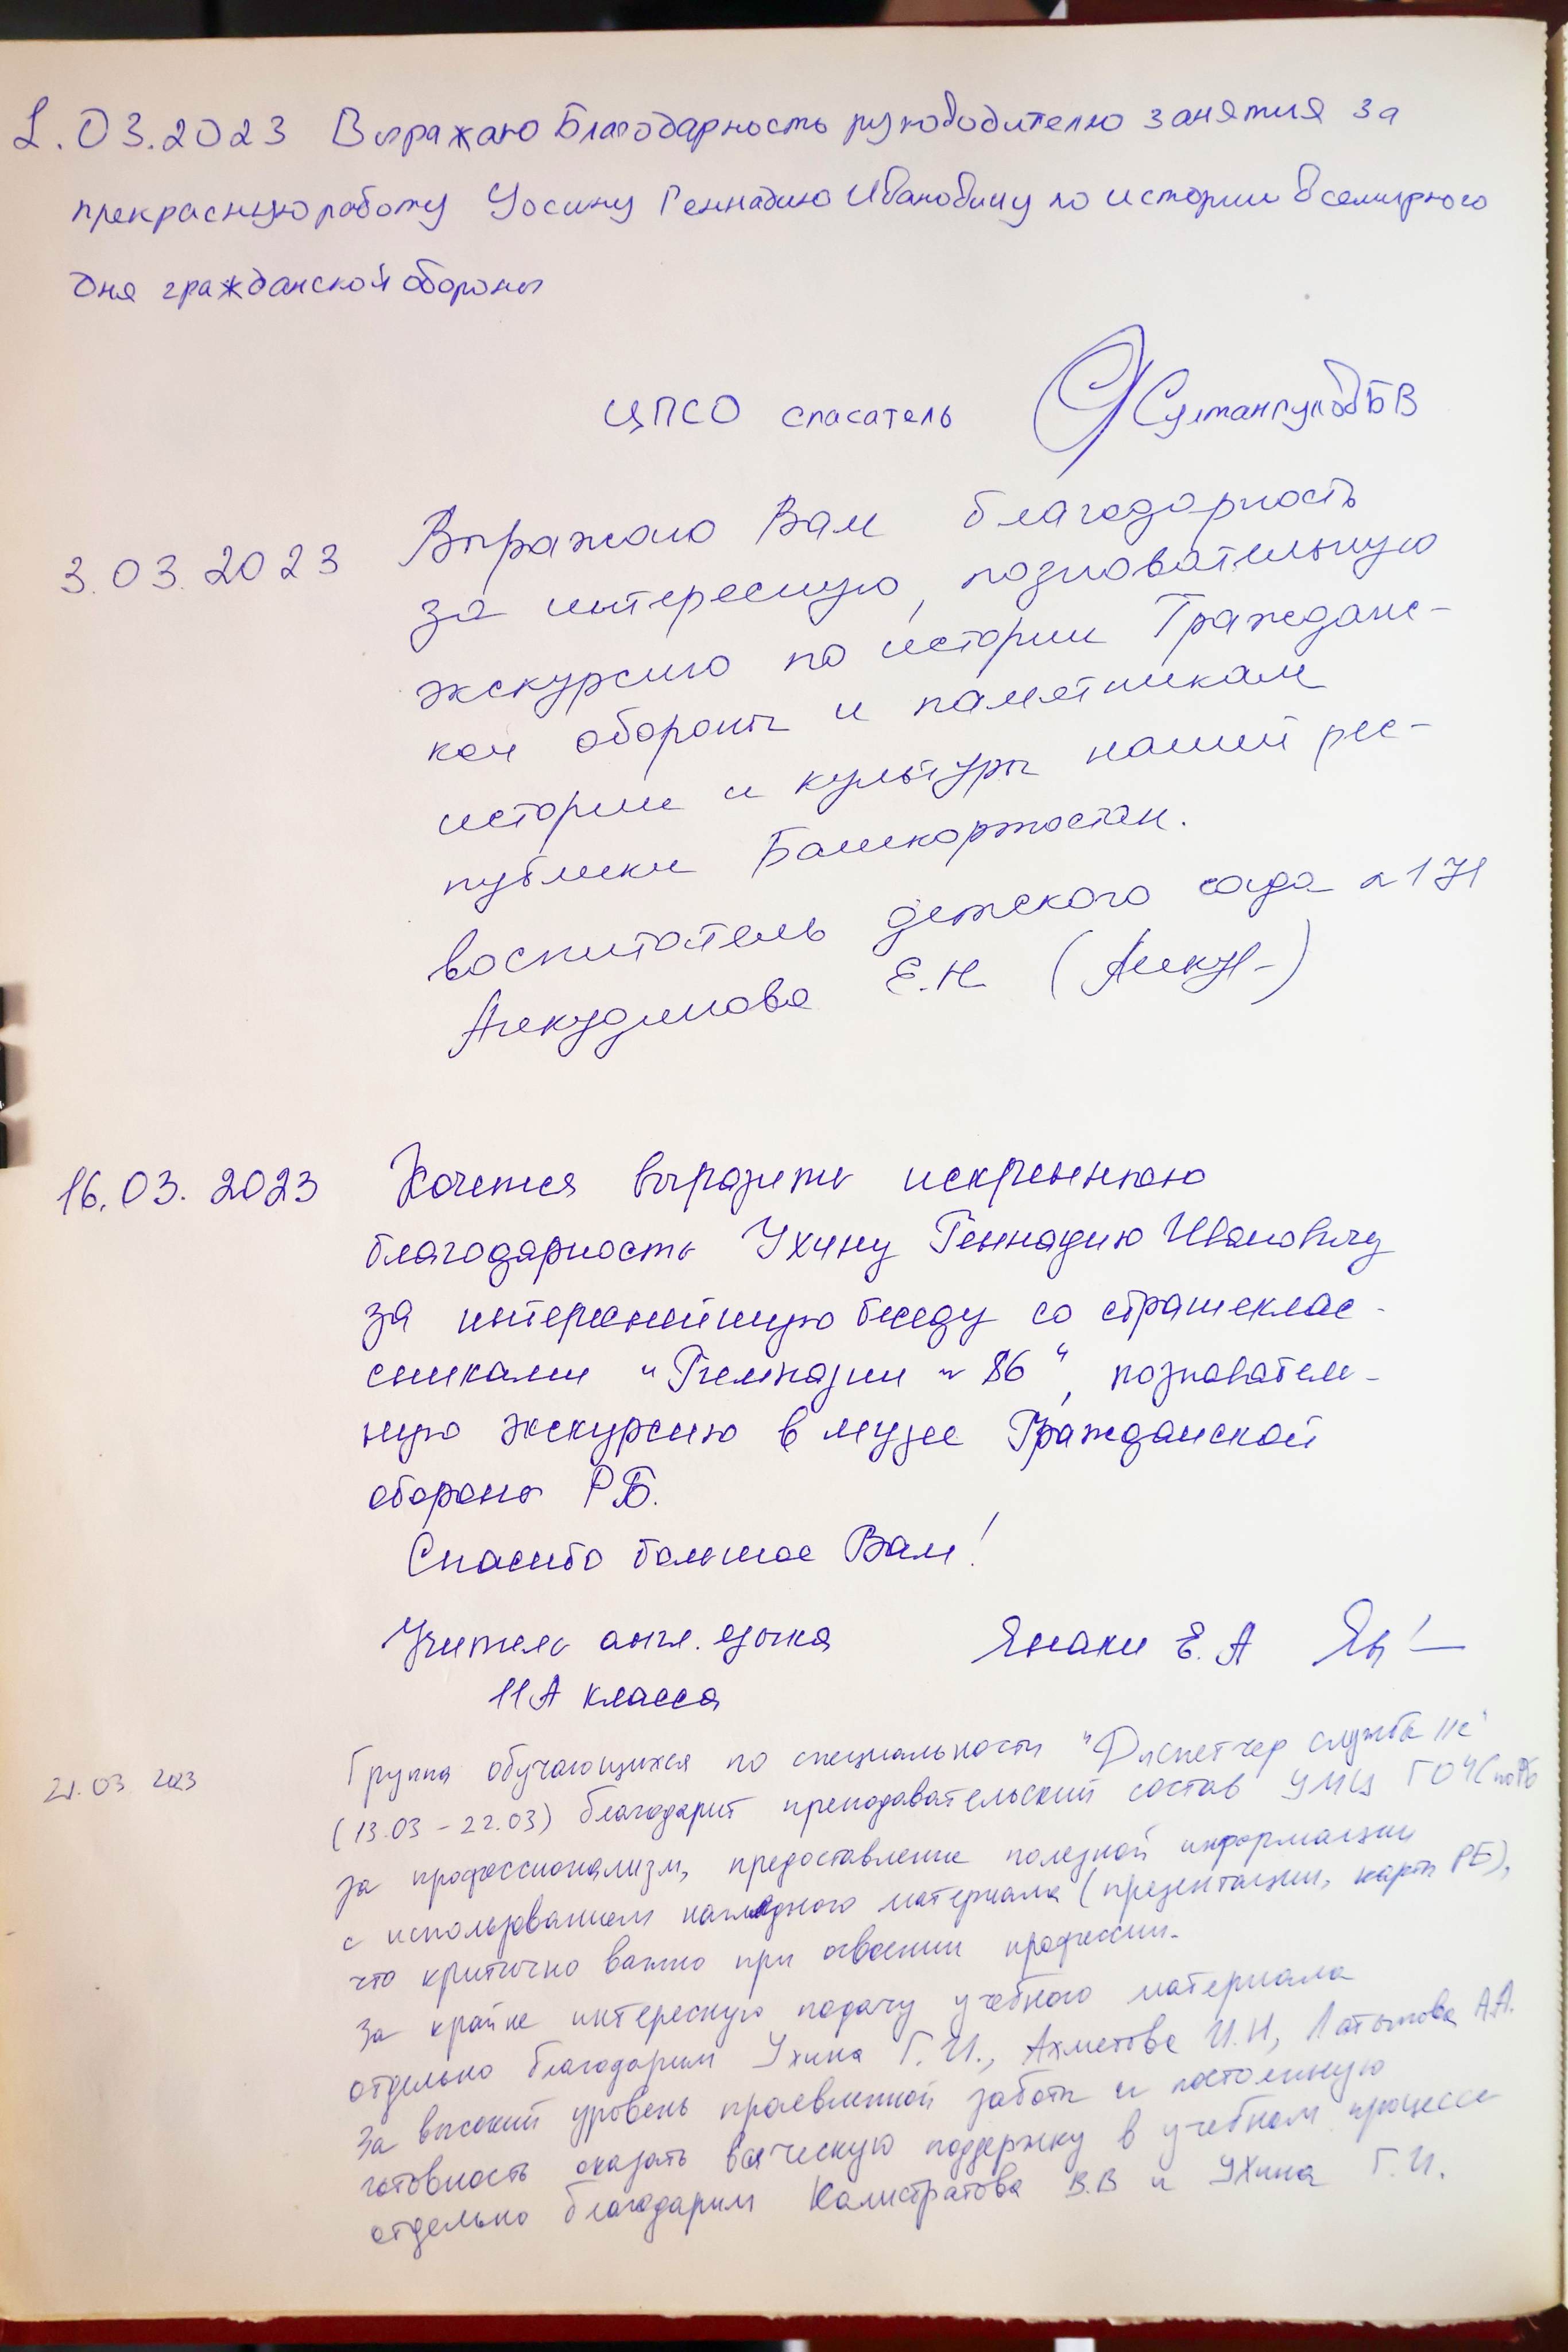 1.03.2023 Выражаю Благодарность руководителю занятия за
прекрасную работу Уосину Геннадию Ивановичу по истории Всемирного
дня гражданской обороны
ЦПСО спасатель Султангулов БВ
3.03.2023 Выражаю Вам благодарность
за интересную, познавательную
экскурсию по истории Гражданс-
кой обороны и памятникам
истории и культуры нашей рес-
публики Башкортостан.
воспитатель детского сада №171
Анкудинова Е.Н (Анкуд-)
16.03.2023 Хочется выразить искреннюю
благодарность Ухину Геннадию Ивановичу
за интереснейшую беседу со страшеклас-
сниками "Гимназии №86", познаватель-
ную экскурсию в музее Гражданской
обороны РБ.
Спасибо большое Вам!
Учитель англ. языка Янаки Е.А
11А класса
21.03.2023 Группа обучающихся по специальности "Диспетчер службы 112"
(13.03-22.03) благодарит преподавательский состав УМЦ ГОЧС по РБ
за профессионализм, предоставление полезной информации
с использованием наглядного материала (презентации, карты РБ),
что критично важно при освоении профессии.
За крайне интересную подачу учебного материала
отдельно благодарим Ухина Г.И., Ахметова И.Н, Латыпова А.А.
За высокий уровень проявленной заботы и постоянную
готовность оказать всяческую поддержку в учебном процессе
отдельно благодарим Калистратова В.В и Ухина Г.И.